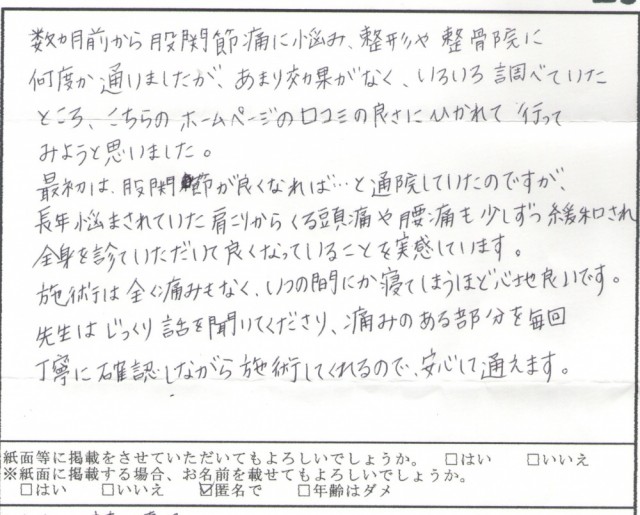 数カ月前から股関節痛に悩み、整形や整骨院に
何度か通いましたが、あまり効果がなく、いろいろ調べていた
ところ、こちらのホームページの口コミの良さにひかれて行って
みようと思いました。
最初は、股関節が良くなれば…と通院していたのですが、
長年悩まされていた肩こりからくる頭痛や腰痛も少しずつ緩和され
全身を診ていただいて良くなっていることを実感しています。
施術は全く痛みもなく、いつの間にか寝てしまうほど心地良いです。
先生はじっくり話を聞いてくださり、痛みのある部分を毎回
丁寧に確認しながら施術してくれるので、安心して通えます。
紙面等に掲載をさせていただいてもよろしいでしょうか。 □はい □いいえ
※紙面に掲載する場合、お名前を載せてもよろしいでしょうか。
□はい □いいえ ☑匿名で □年齢はダメ